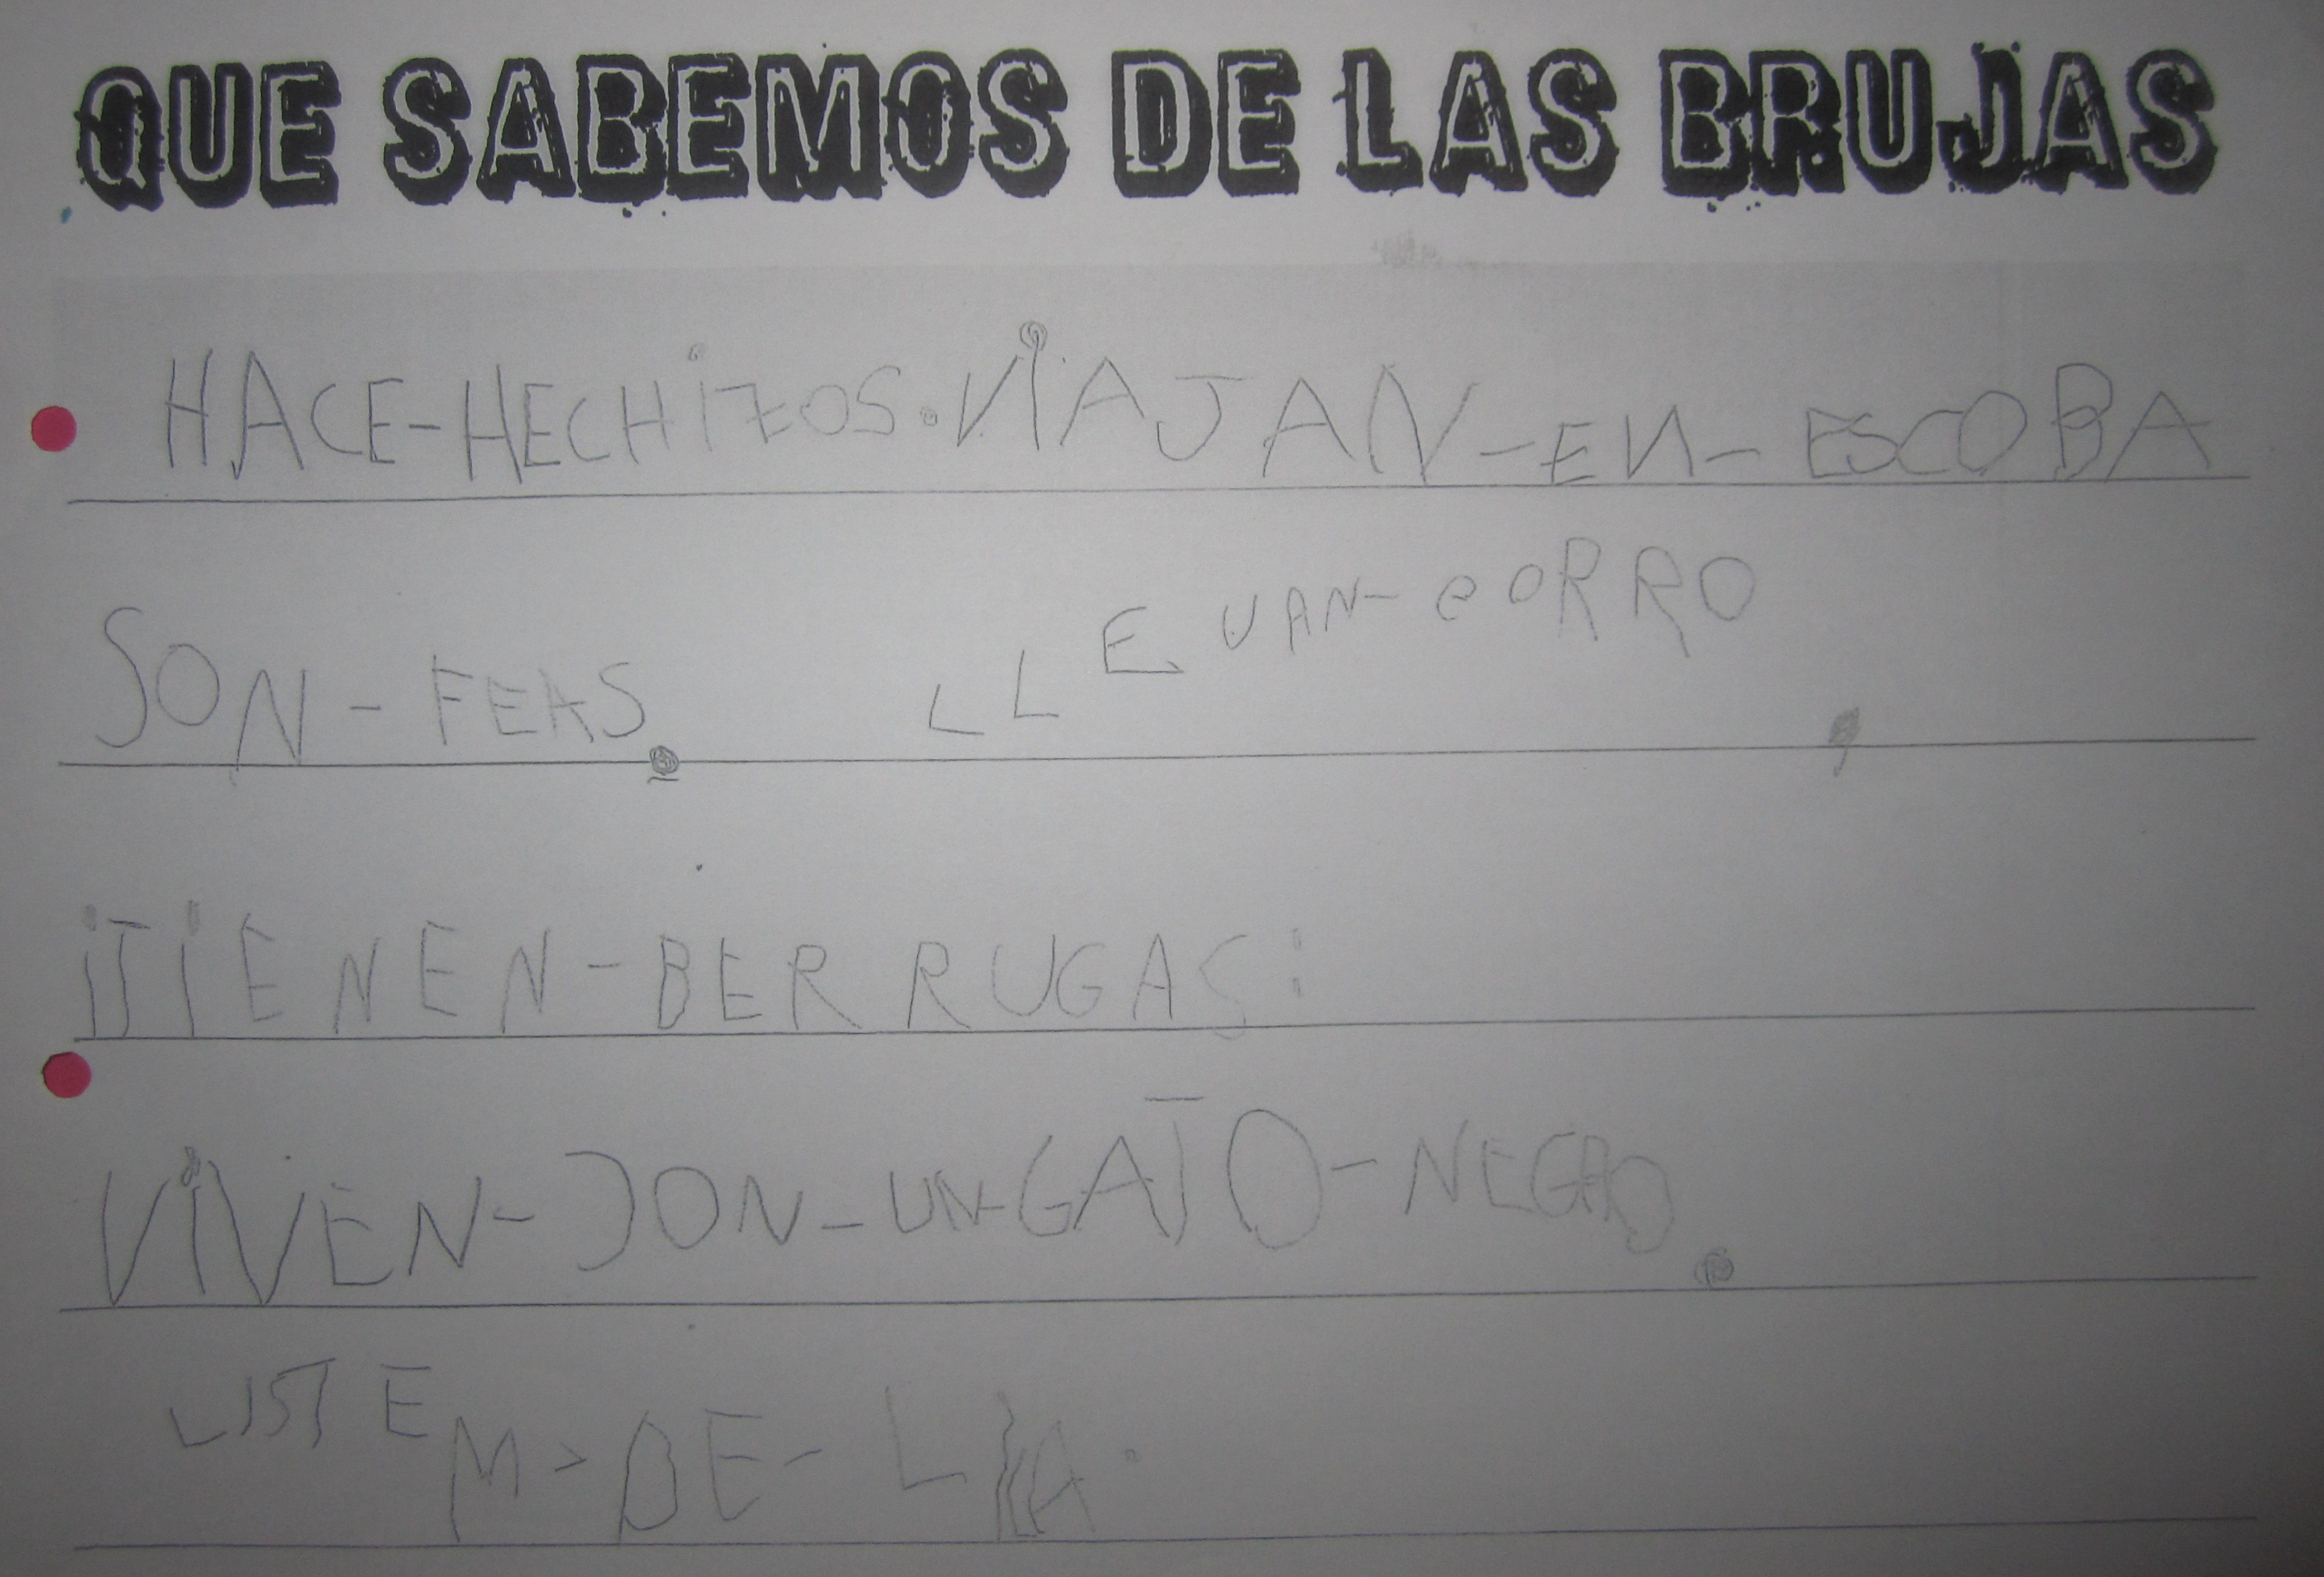 QUE SABEMOS DE LAS BRUJAS
HACE-HECHIZOS.VIAJAN-EN-ESCOBA
SON-FEAS. LLEVAN-GORRO
¡TIENEN-BERRUGAS!
VIVEN-CON-UN-GATO-NEGRO.
DE-